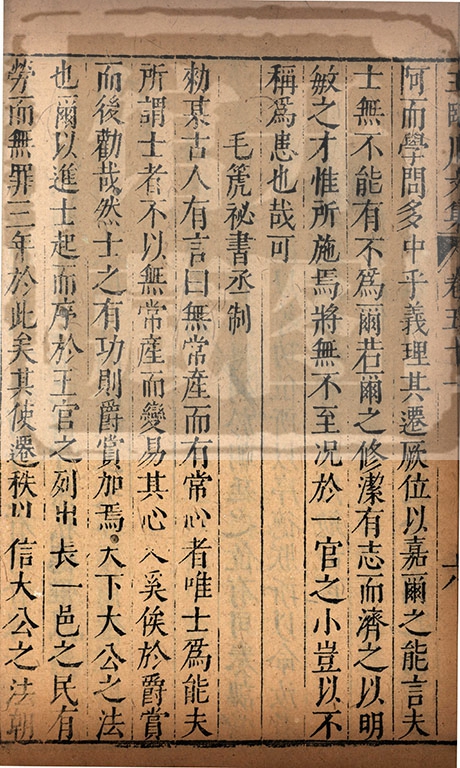 王臨川文集 卷五十一 十八
阿而學問多中乎義理其遷厥位以嘉爾之能言夫
士無不能有不爲爾若爾之修潔有志而濟之以明
敏之才惟所施焉將無不至况於一官之小豈以不
稱爲患也哉可
毛篪祕書丞制
勑某古人有言曰無常產而有常心者唯士爲能夫
所謂士者不以無常產而變易其心又奚俟於爵賞
而後勸哉然士之有功則爵賞加焉天下大公之法
也爾以進士起而序於王官之列出長一邑之民有
勞而無罪三年於此矣其使遷秩以信大公之法朝